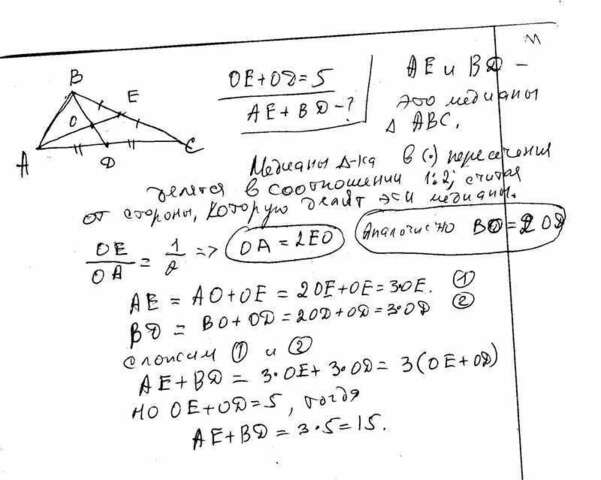 m
B
E
O
A
D
C
OE+OD=5
AE+BD-?
AE и BD -
это медианы
Δ ABC.
Медианы Δ-ка в (·) пересечения
делятся в соотношении 1:2, считая
от стороны, которую делят эти медианы.
OE/OA = 1/2 => OA = 2EO
Аналогично BO = 2OD
AE = AO+OE = 2OE+OE = 3·OE. ①
BD = BO+OD = 2OD+OD = 3·OD ②
сложим ① и ②
AE+BD = 3·OE+3·OD = 3(OE+OD)
но OE+OD=5, тогда
AE+BD = 3·5=15.